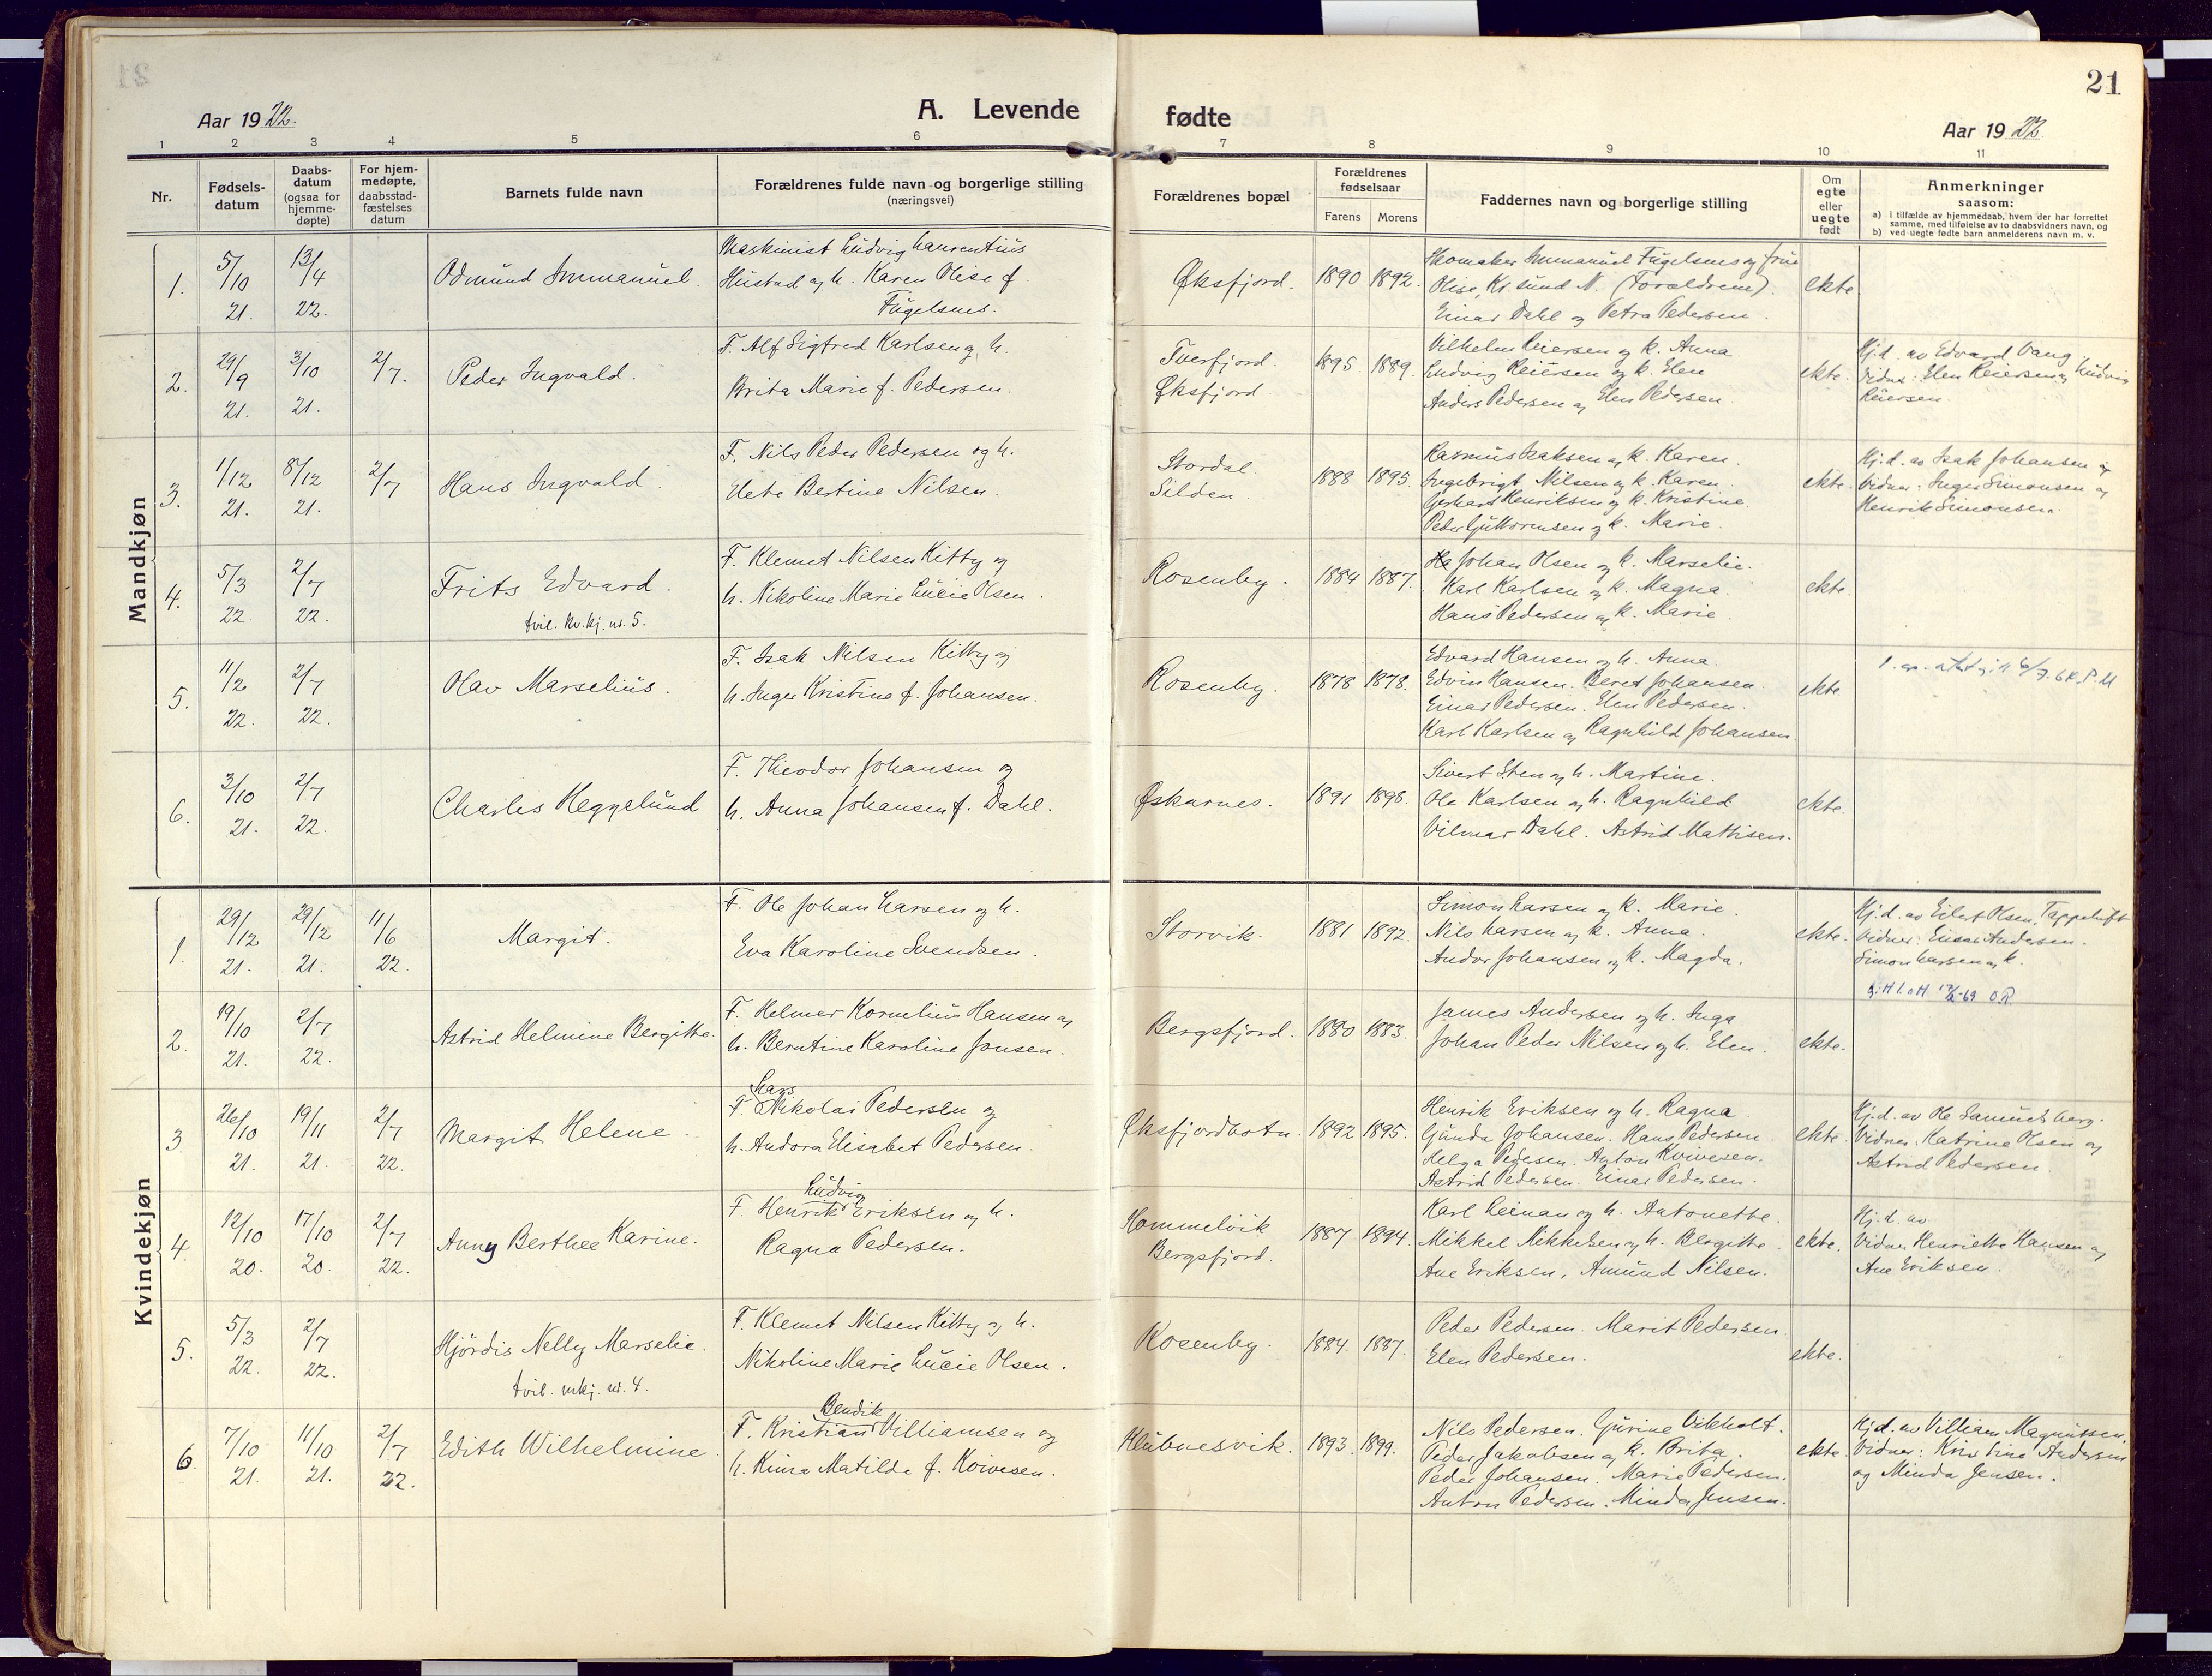 21
Aar 1922.
A. Levende
fødte
Aar 1922
1 2 3 4 5 6 7 8 9 10 11
Nr.
Fødsels-
datum
Daabs-
datum
(ogsaa for
hjemme-
døpte)
For hjem-
medøpte,
daabsstad-
fæstelses
datum
Barnets fulde navn
Forældrenes fulde navn og borgerlige stilling
(næringsvei)
Forældrenes bopæl
Forældrenes
fødselsaar
Farens Morens
Faddernes navn og borgerlige stilling
Om
egte
eller
uegte
født
Anmerkninger
saasom:
a) i tilfælde av hjemmedaab, hvem der har forrettet
samme, med tilføielse av to daabsvidners navn, og
b) ved uegte fødte barn anmelderens navn m. v.
Mandkjøn
1. 5/10 21. 13/4 22. Odmund Immanuel.
Maskinist Ludvig Laurentius
Hustad og h. Karen Olise f.
Fugelsnes.
Øksfjord. 1890 1892.
Skomaker Immanuel Fugelsnes og frue
Olise, Kr. sund N. (Forældrene).
Einar Dahl og Petra Pedersen.
ekte.
2. 29/9 21. 3/10 21. 2/7. Peder Ingvald.
F. Alf Sigfred Karlsen og h.
Brita Marie f. Pedersen.
Tverfjord.
Øksfjord.
1895. 1889.
Vilhelm Reiersen og k. Anna
Ludvig Reiersen og k. Elen
Anders Pedersen og Elen Pedersen.
ekte.
Hj.d. av Edvard Vang.
Vidner: Elen Reiersen og Ludvig
Reiersen.
3. 1/12 21. 8/12 21. 2/7 Hans Ingvald.
F. Nils Peder Pedersen og h.
Elete Bertine Nilsen.
Stordal
Silden
1888 1895.
Rasmus Isaksen og k. Karen.
Ingebrigt Nilsen og k. Karen.
Gerhard Henriksen og k. Kristine
Peder Guttormsen og k. Marie.
ekte.
Hj.d. av Isak Johansen og
Vidner: Inger Simonsen og
Henrik Simonsen.
4. 5/3 22. 2/7 22. Frits Edvard.
tvil. kv.kj. nr. 5.
F. Klemet Nilsen Kitty og
h. Nikoline Marie Lucie Olsen.
Rosenby. 1884 1887.
Johan Olsen og k. Marselie.
Karl Karlsen og k. Magna.
Hans Pedersen og k. Marie.
ekte.
5. 11/2 22. 2/7 22. Olav Marselius.
F. Isak Nilsen Kitty og
h. Inger Kristine f. Johansen.
Rosenby. 1878 1878.
Edvard Hansen og h. Anna.
Edvin Hansen. Beret Johansen.
Einar Pedersen. Elen Pedersen.
Karl Karlsen og Ragnhild Johansen.
ekte.
6. 3/10 21. 2/7 22. Charles Heggelund
F. Theodor Johansen og
h. Anna Johansen f. Dahl.
Øskarnes. 1891 1898.
Sivert Sten og h. Martine.
Ole Karlsen og h. Ragnhild
Vilmar Dahl. Astrid Mathisen.
ekte.
Kvindekjøn
1. 29/12 21. 29/12 21. 11/6 22. Margit.
F. Ole Johan Larsen og h.
Eva Karoline Svendsen.
Storvik. 1881 1892.
Simon Larsen og k. Marie.
Nils Larsen og k. Anna.
Andor Johansen og k. Magda.
ekte.
Hj.d. av Eilert Olsen, Tappeluft
Vidner: Einar Andersen.
Simon Larsen og k.
2. 19/10 21. 2/7 22. Astrid Helmine Bergitte.
F. Helmer Kornelius Hansen og
h. Berntine Karoline Jonsen.
Bergsfjord. 1880 1883.
James Andersen og h. Inga
Johan Peder Nilsen og h. Elen.
ekte.
3 26/10 21. 19/11 21. 2/7 22. Margit Helene.
Lars
F. Nikolai Pedersen og
h. Andora Elisabet Pedersen.
Øksfjordbotn. 1892 1895.
Henrik Eriksen og h. Ragna
Gunda Johansen. Hans Pedersen.
Helga Pedersen. Anton Kvivesen.
Astrid Pedersen. Einar Pedersen.
ekte.
Hj.d. av Ole Samuelsberg.
Vidner. Katrine Olsen og
Astrid Pedersen.
4. 12/10 20. 17/10 20. 2/7 22. Anny Berthea Karine.
Ludvig
F. Henrik Eriksen og h.
Ragna Pedersen.
Hommelvik
Bergsfjord.
1887 1894.
Karl Reinan og h. Antonette.
Mikkel Mikkelsen og h. Bergitte.
Ane Eriksen. Amund Nilsen.
ekte.
Hj.d. av
Vidner Henriette Hansen og
Ane Eriksen.
5. 5/3 22. 2/7 22. Hjördis Nelly Marselie.
tvil. mkj. nr. 4.
F. Klemet Nilsen Kitty og h.
Nikoline Marie Lucie Olsen.
Rosenby. 1884. 1887.
Peder Pedersen. Marit Pedersen.
Elen Pedersen.
ekte.
6 7/10 21. 11/10 21. 2/7 22. Edith Wilhelmine.
Bendik
F. Kristian Villiamsen og
h. Kima Matilde f. Kvivesen.
Klubnesvik. 1893. 1899.
Nils Pedersen. Gurine Vikholt.
Peder Jakobsen og k. Brita.
Peder Johansen. Marie Pedersen.
Anton Pedersen. Minda Jensen.
ekte.
Hj.d. av Villiam Magnussen.
Vidner: Kristine Andersen
og Minda Jensen.